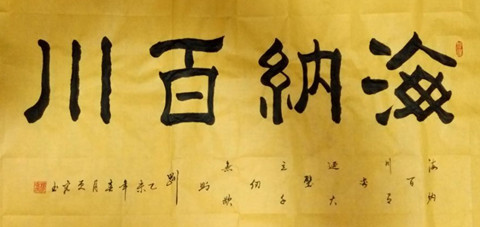 海納百川
海納
百
川有
容
迺大
壁
立千
仞
無欲
則
剛
乙未年春月